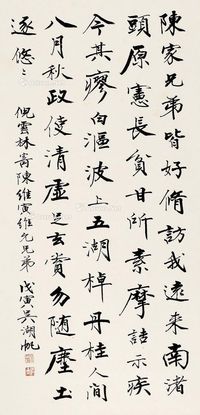 陳家兄弟皆好脩訪我遠來南渚
頭原憲長貧甘所素摩詰示疾
今其瘳白漚波上五湖棹丹桂人間
八月秋政使清虛足玄賞勿隨塵土
逐悠〻
倪雲林寄陳維寅維允兄弟
戊寅吳湖帆